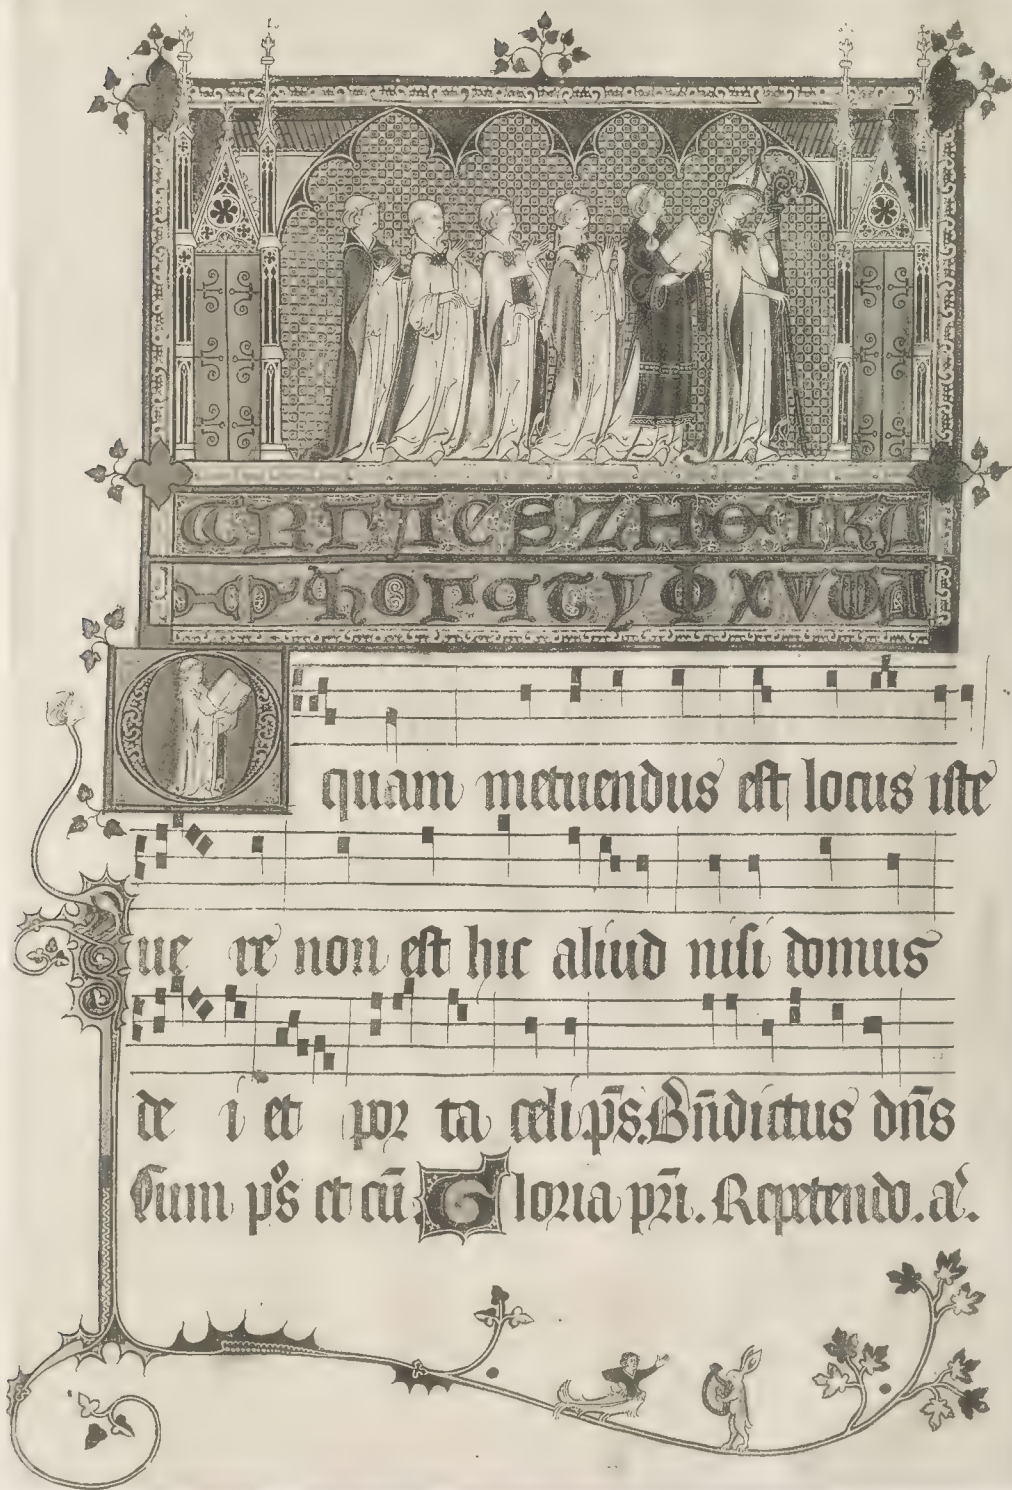 Α Β Γ Δ Є S Z H Θ I K Λ
O Φ X V
O quam metuendus est locus iste
ue re non est hic aliud nisi domus
de i et por ta celi. p̄s. Bn̄dictus dn̄s
ps et cū. Gloria pr̄i. Repetendo. a.